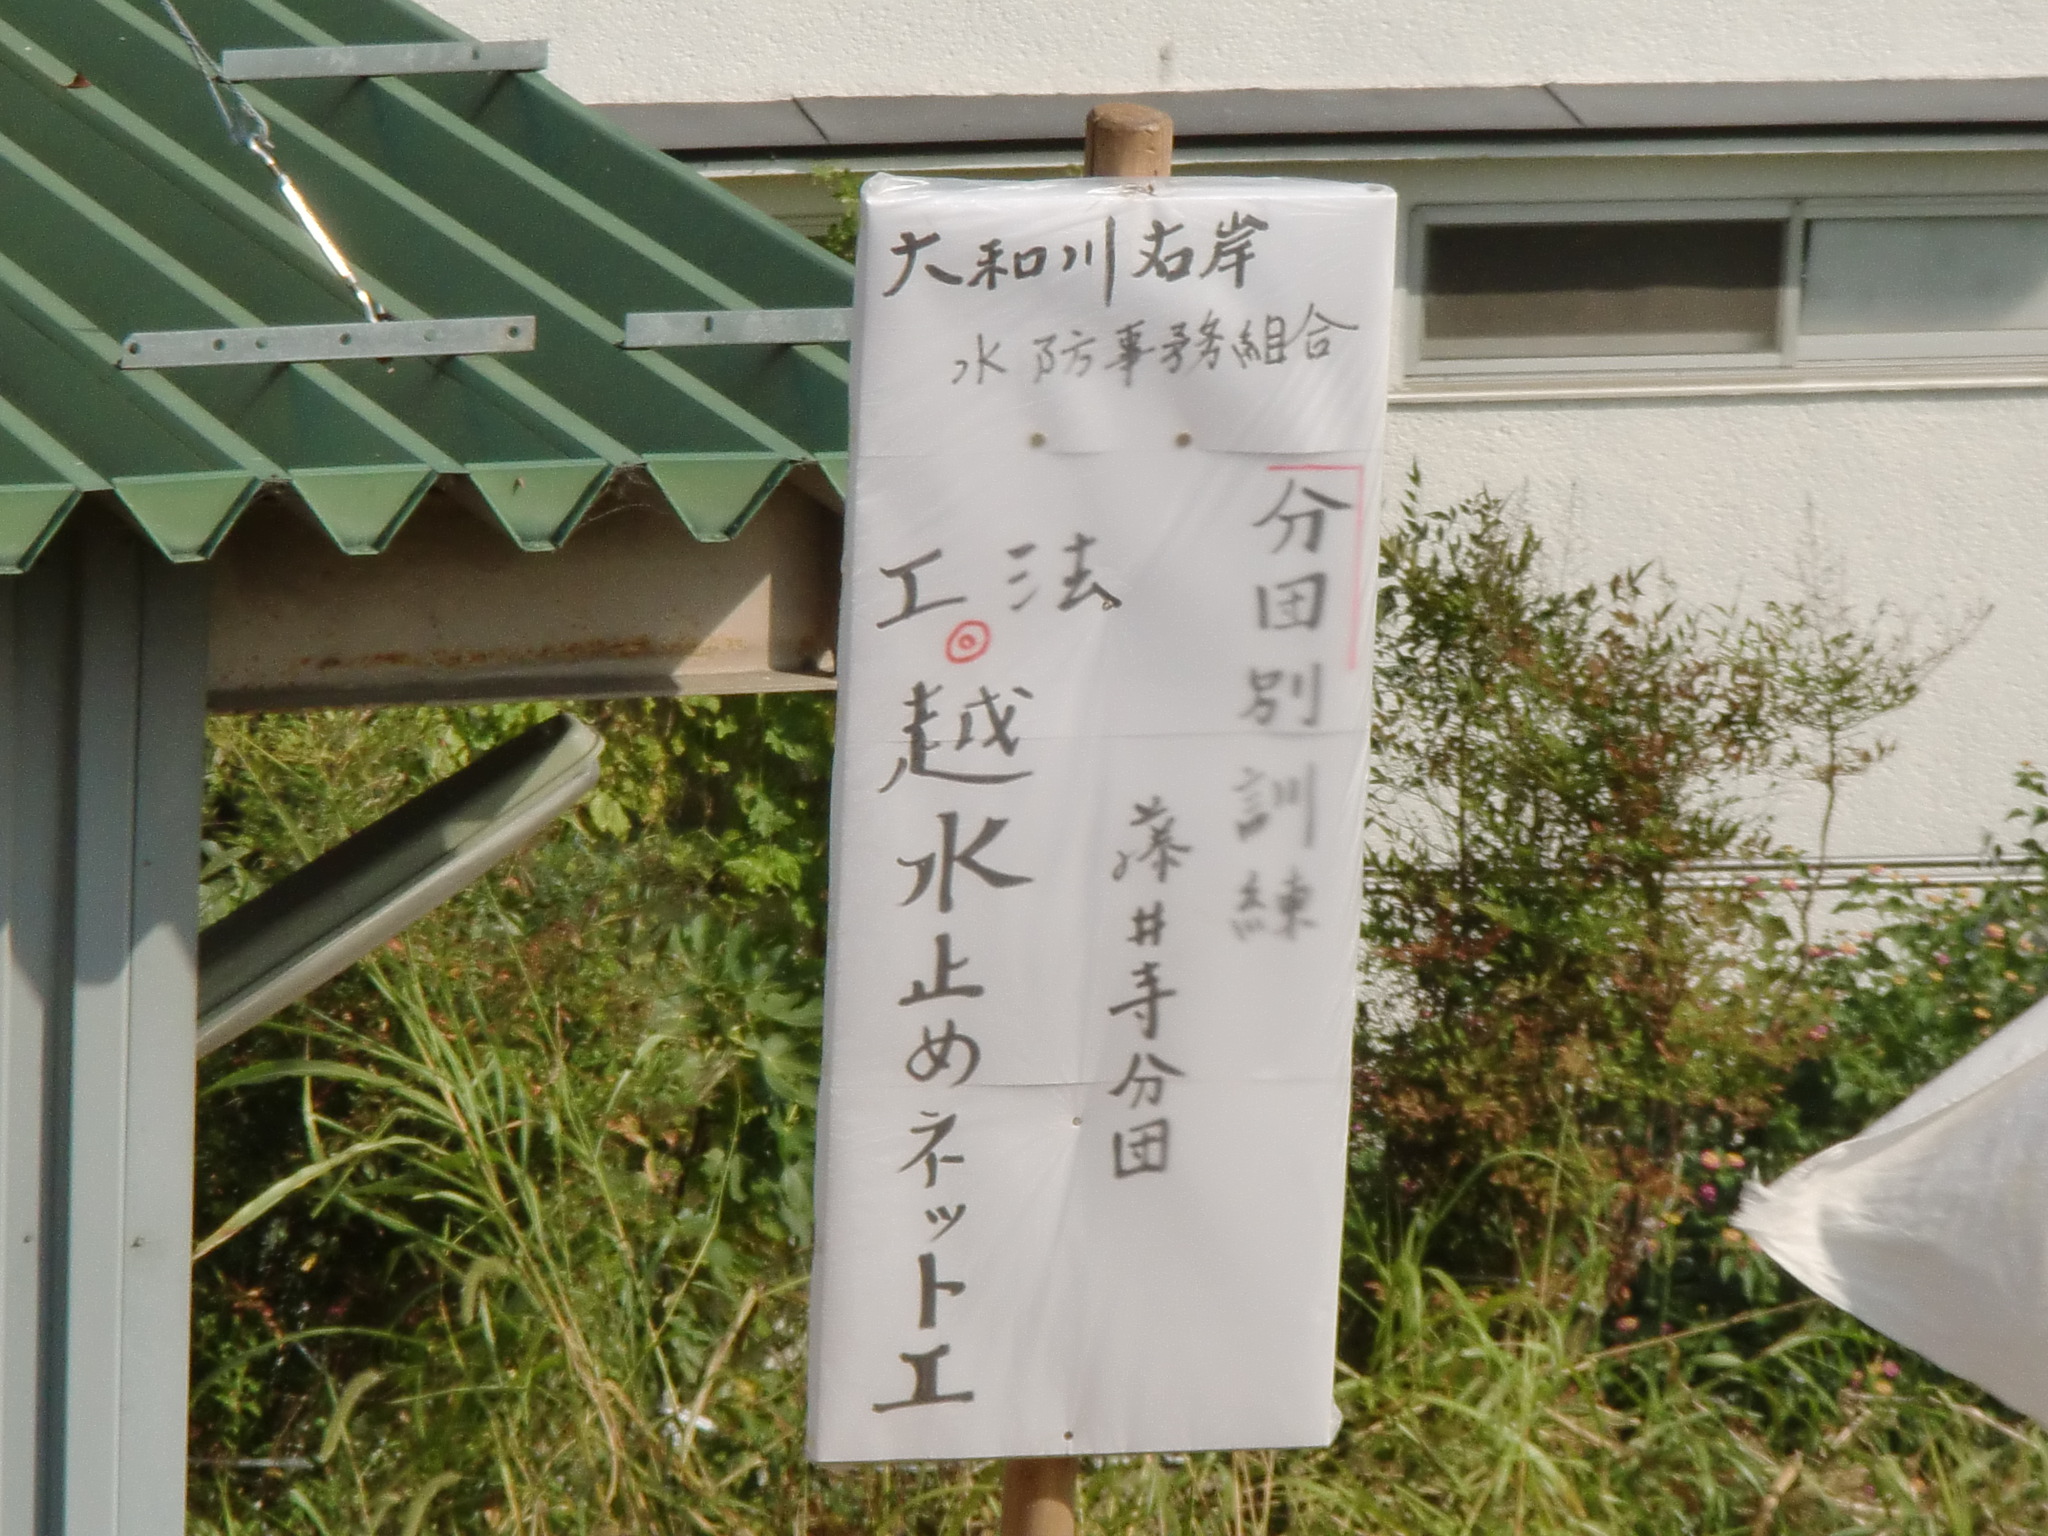 大和川右岸
水防事務組合
分団別訓練
藤井寺分団
工法
越水止めネット工